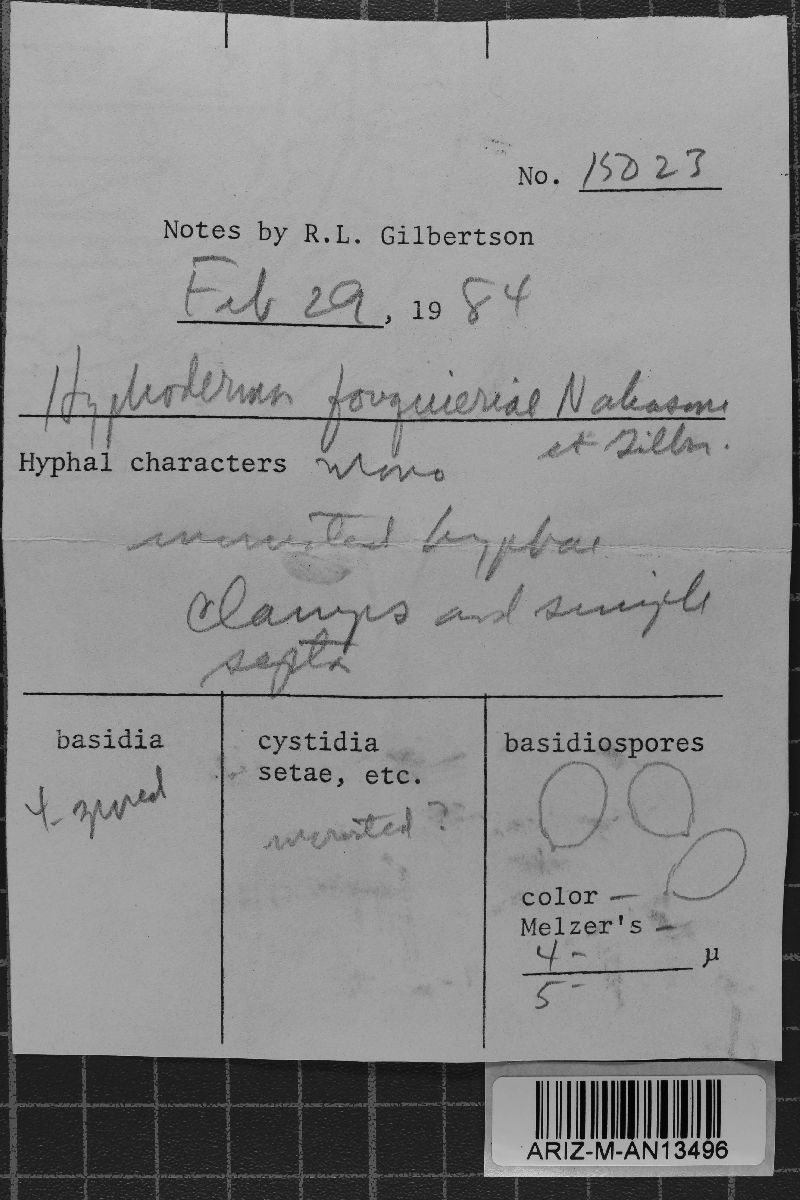 No. 15023
Notes by R.L. Gilbertson
Feb 29, 19 84
Hyphoderma fouquieriae Nakasone
et Gilbn.
Hyphal characters Mono
incrusted hyphae
clamps and simple
septa
basidia
4-spored
cystidia
setae, etc.
incrusted ?
basidiospores
color —
Melzer's —
4 - µ
5 -
ARIZ-M-AN13496